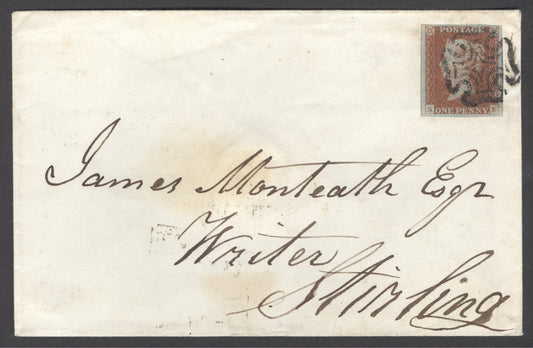 POSTAGE
ONE PENNY
James Monteath Esqr
Writer
Stirling